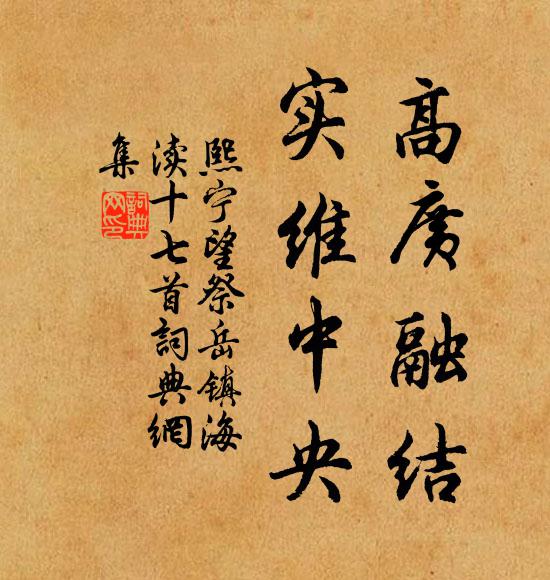 高廣融结
实维中央
熙宁望祭岳镇海
渎十七首詞典網
集
詞典网印